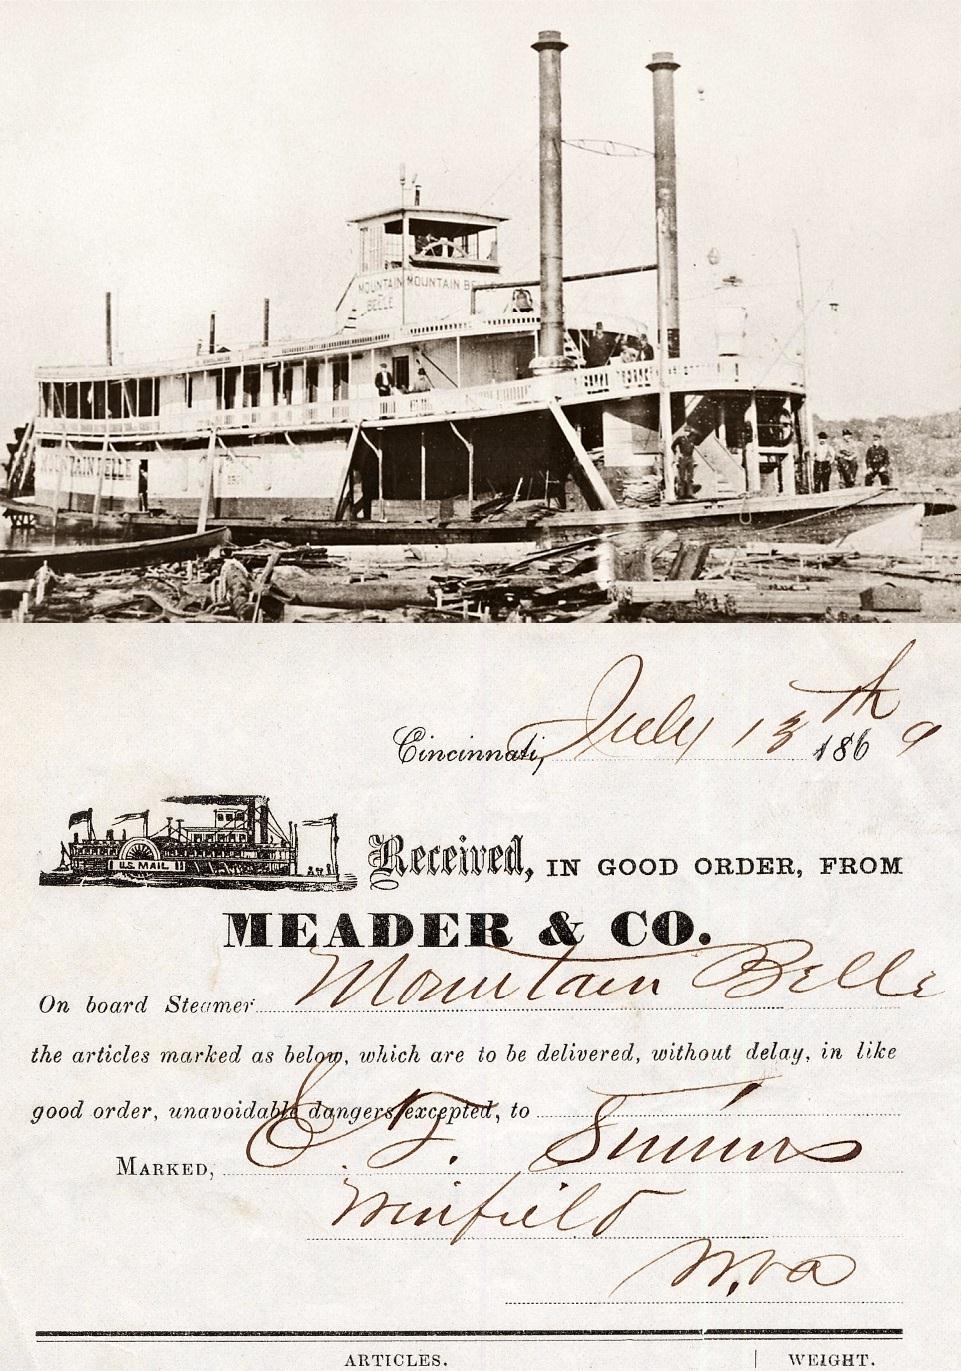 MOUNTAIN MOUNTAIN BE
BELLE
MOUNTAIN BELLE
Cincinnati, July 13th 1869
U.S. MAIL
Received, IN GOOD ORDER, FROM
MEADER & CO.
On board Steamer Mountain Belle
the articles marked as below, which are to be delivered, without delay, in like
good order, unavoidable dangers excepted, to
MARKED, E. T. Simms
Winfield
W.va
ARTICLES. WEIGHT.